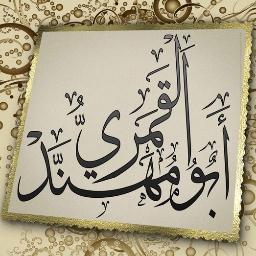 القمري
أبو مهند